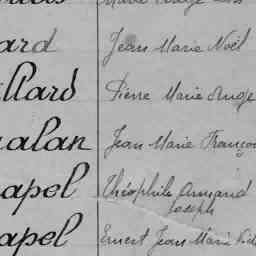 ard Jean Marie Noël
llard Pierre Marie Ange
alan Jean Marie Franço
apel Théophile Armand
Joseph
apel Ernest Jean Marie